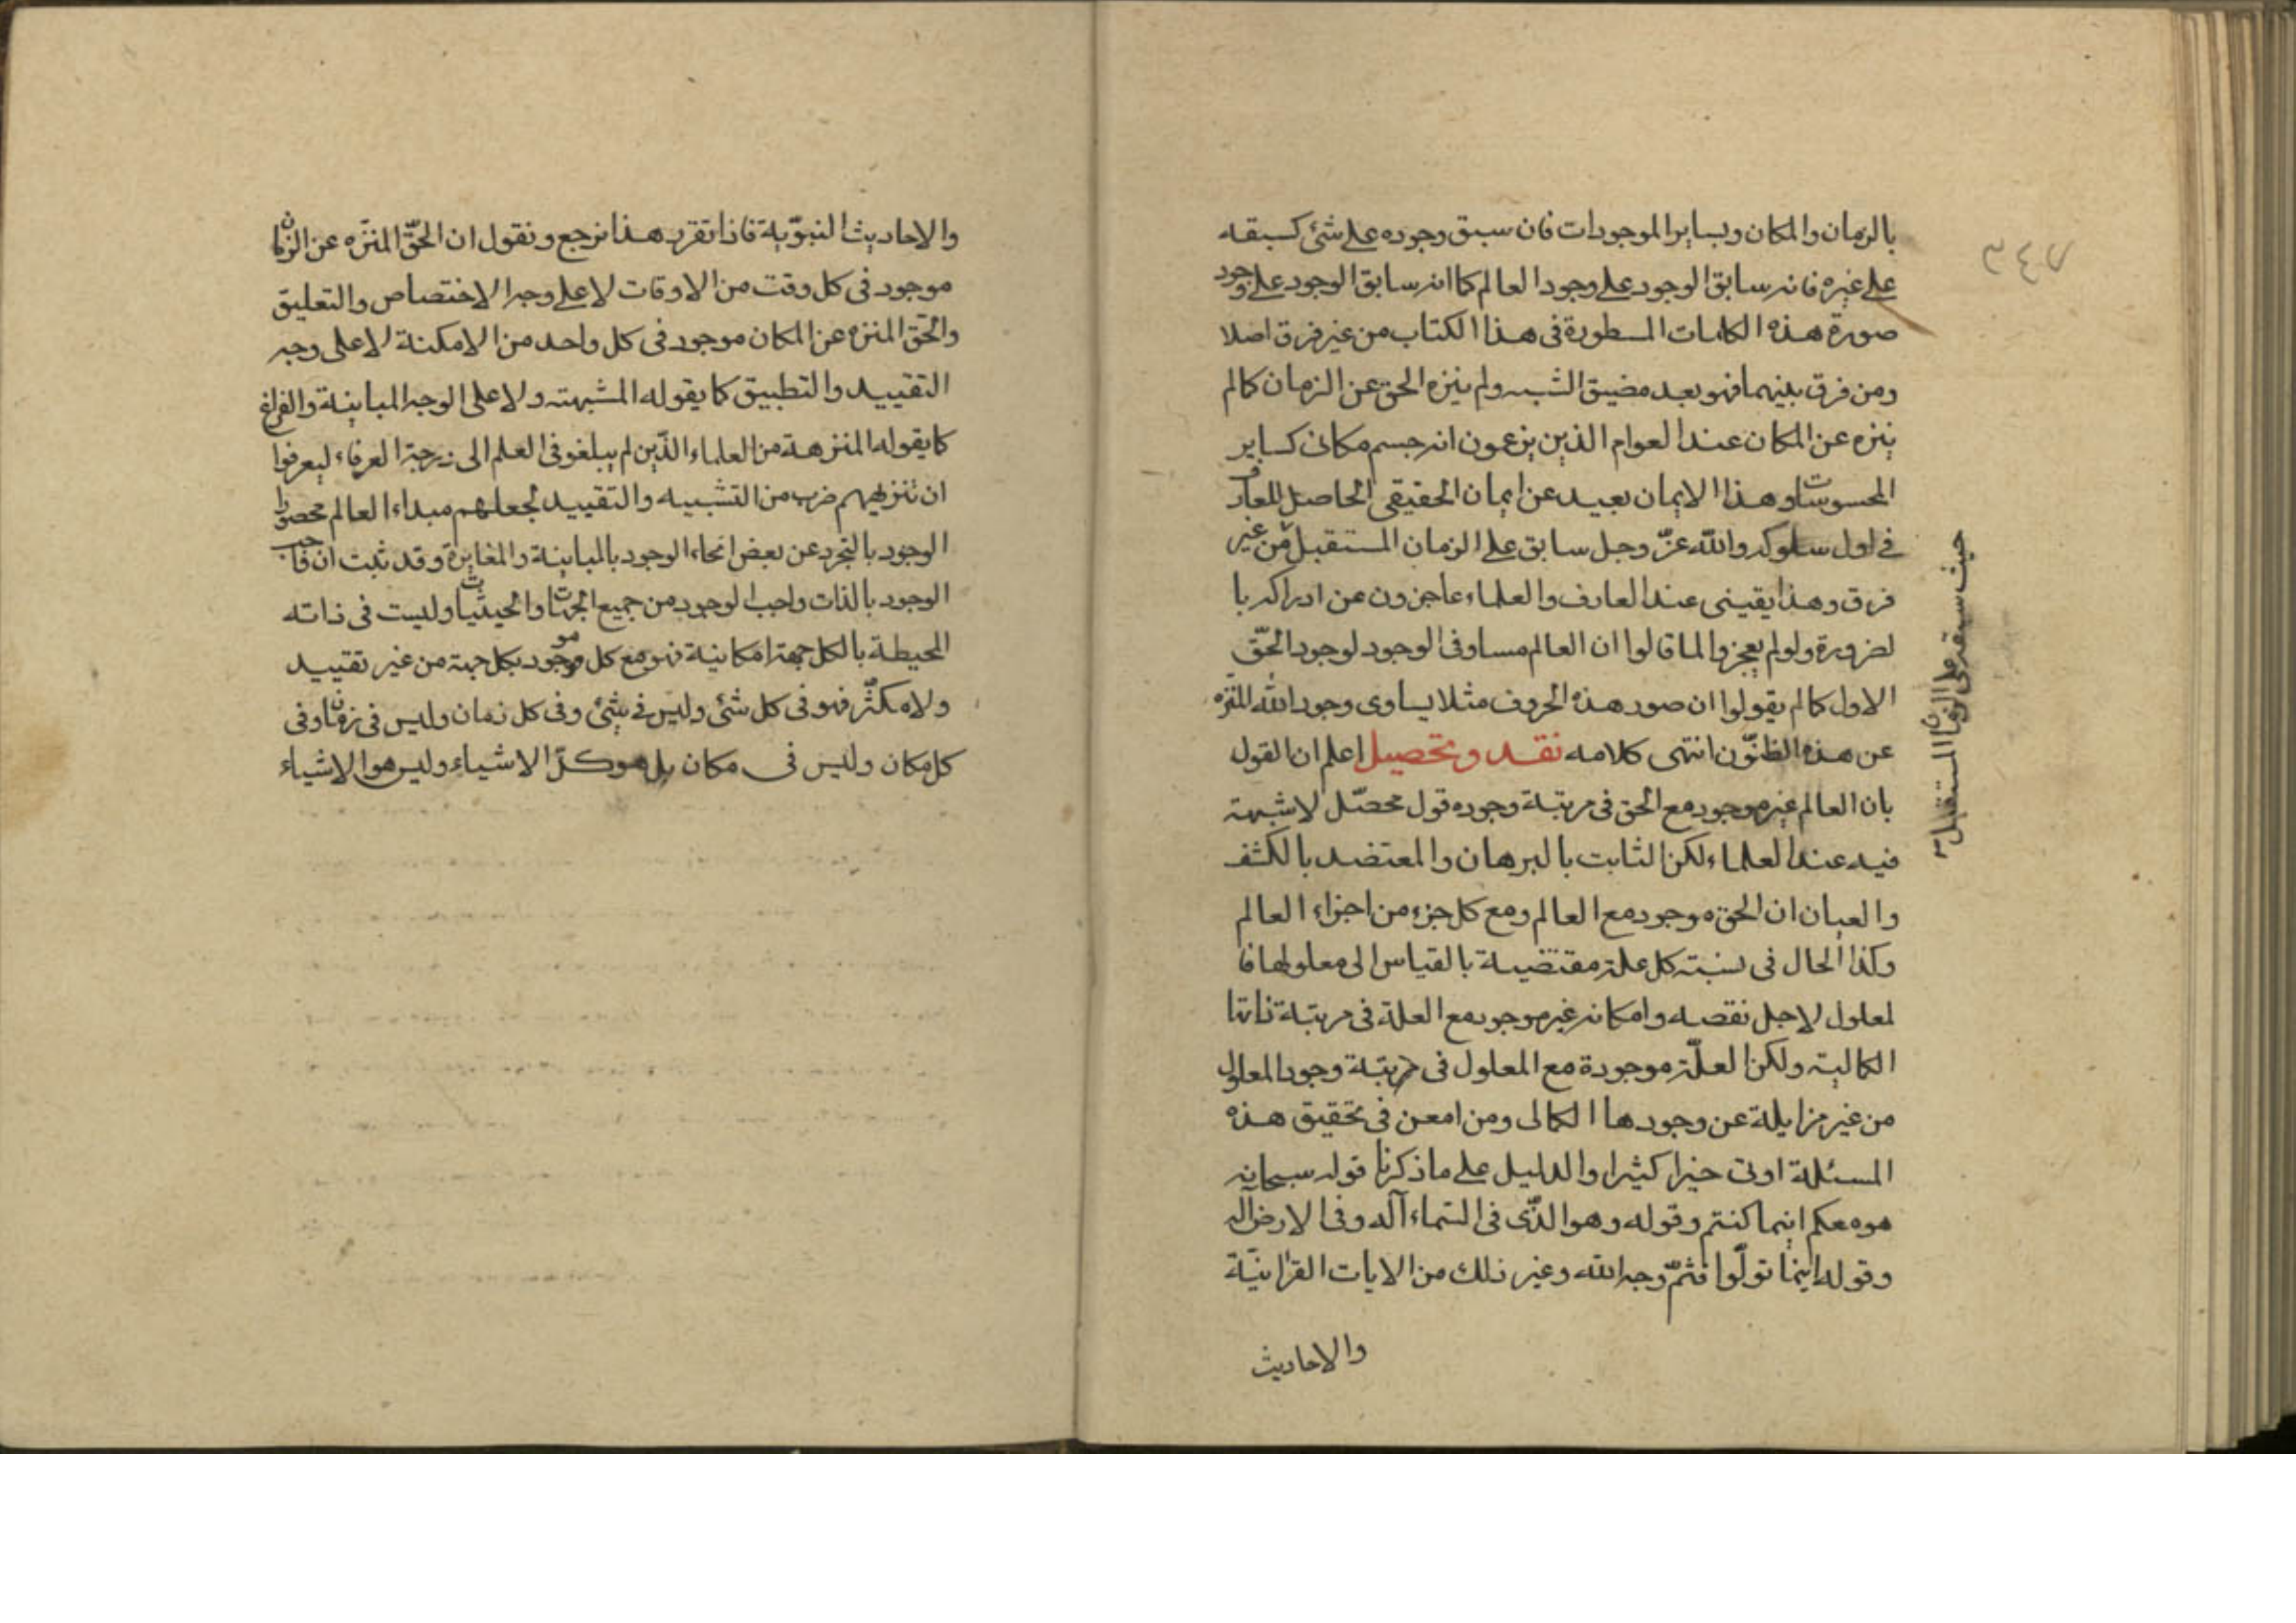 بالزمان والمكان وبسایر الموجودات فان سبق وجوده علی شئ کسبقه
علی غیره فانه سابق الوجود علی وجود العالم کما انه سابق الوجود علی وجود
صورة هذه الکلمات المسطورة فی هذا الکتاب من غیر فرق اصلا
ومن فرق بینهما فهو بعد مضیق الشبه ولم ینزه الحق عن الزمان کما لم
ینزه عن المکان عند العوام الذین یزعون انه جسم مکانی کسایر
المحسوسات وهذا الایمان بعید عن ایمان الحقیقی الحاصل للعارف
فی اول سلوکه والله عزّ وجل سابق علی الزمان المستقبل من غیر
حیث سبقه علی الزمان المستقبل
فرق وهذا یقینی عند العارف والعلماء عاجزون عن ادراکه با
لضرورة ولو لم یعجزوا لما قالوا ان العالم مساو فی الوجود لوجود الحقّ
الاول کما لم یقولوا ان صور هذه الحروف مثلا یساوی وجود الله المنزّه
عن هذه الظنّون انتهی کلامه نقد وتحصیل اعلم ان القول
بان العالم غیر موجود مع الحق فی مرتبة وجوده قول محصّل لا شبهة
فیه عند العلماء لکن الثابت بالبرهان والمعتضد بالکشف
والعیان ان الحق موجود مع العالم ومع کل جزء من اجزاء العالم
وکذا الحال فی نسبته کل علة مقتضیة بالقیاس الی معلولها فا
لمعلول لاجل نقصه وامکانه غیر موجود مع العلة فی مرتبة ذاتها
الکمالیة ولکن العلّة موجودة مع المعلول فی مرتبة وجود المعلول
من غیر مزایلة عن وجودها الکمالی ومن امعن فی تحقیق هذه
المسئلة اوتی خیرا کثیرا والدلیل علی ما ذکرنا قوله سبحانه
هوه معکم اینما کنتم وقوله وهو الذّی فی السّماء آله وفی الارض اله
وقوله اینما تولّوا فثمّ وجه الله وغیر ذلك من الایات القرانیّة
والاحادیث
٣٤٧
والاحادیث النبوّیة فاذا تقرر هذا نرجع ونقول ان الحقّ المنزّه عن الزمان
موجود فی کل وقت من الاوقات لا علی وجه الاختصاص والتعلیق
والحّق المنزه عن المکان موجود فی کل واحد من الامکنة لا علی وجه
التقیید والتطبیق کما یقوله المشبهته ولا علی الوجه المباینة والفراغ
کما یقوله المنزهة من العلماء الذّین لم یبلغو فی العلم الی درجة العرفاء لیعرفوا
ان تنزیههم ضرب من التشبیه والتقیید لجعلهم مبداء العالم محصورا
الوجود بالتجرد عن بعض انحاء الوجود بالمباینة والمغایرة وقد ثبت ان واجب
الوجود بالذات واجب الوجود من جمیع الجهات والحیثیّات ولیست فی ذاته
المحیطة بالکل جهة امکانیة فهو مع کل موجود بکل جهة من غیر تقیید
ولا مکثّر فهو فی کل شئ ولیس فی شئ وفی کل زمان ولیس فی زمان وفی
کل مکان ولیس فی مکان بل هو کلّ الاشیاء ولیس هو الاشیاء